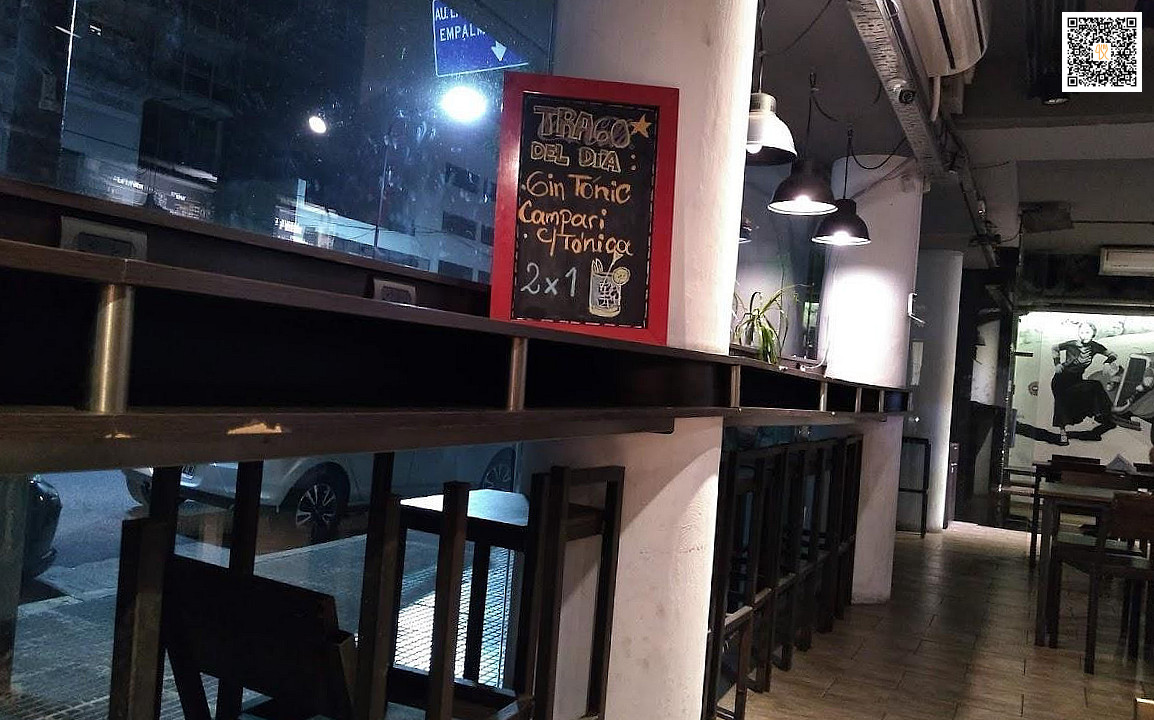 AU. L
EMPALM
TRAGO
DEL DÍA:
·Gin Tónic
Campari
· c/Tónica
2x1